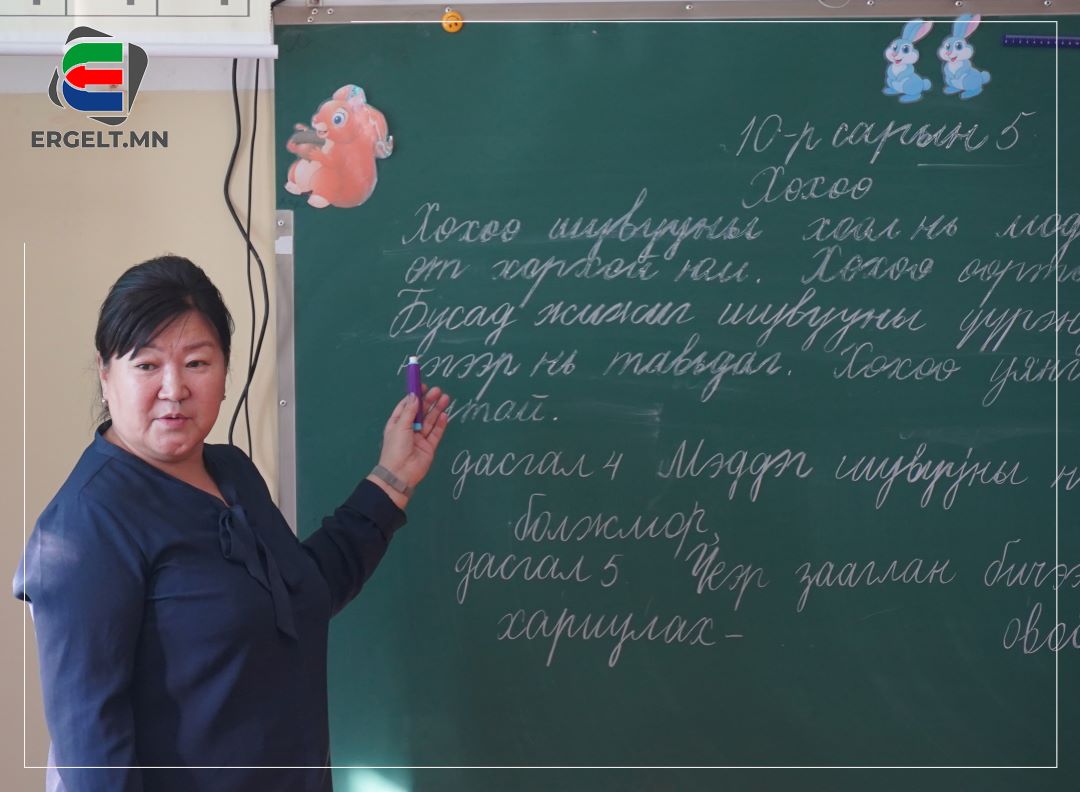 ERGELT.MN
10-р сарын 5
Хөхөө
Хөхөө шувууны хоол нь мод
өт хорхой юм. Хөхөө өөртө
Бусад жижиг шувууны үүрэнд
нь тавьдаг. Хөхөө уянг
дасгал 4 Мэддэг шувууны н
болжмор,
дасгал 5 Үеэр зааглан бичээ
хариулах-